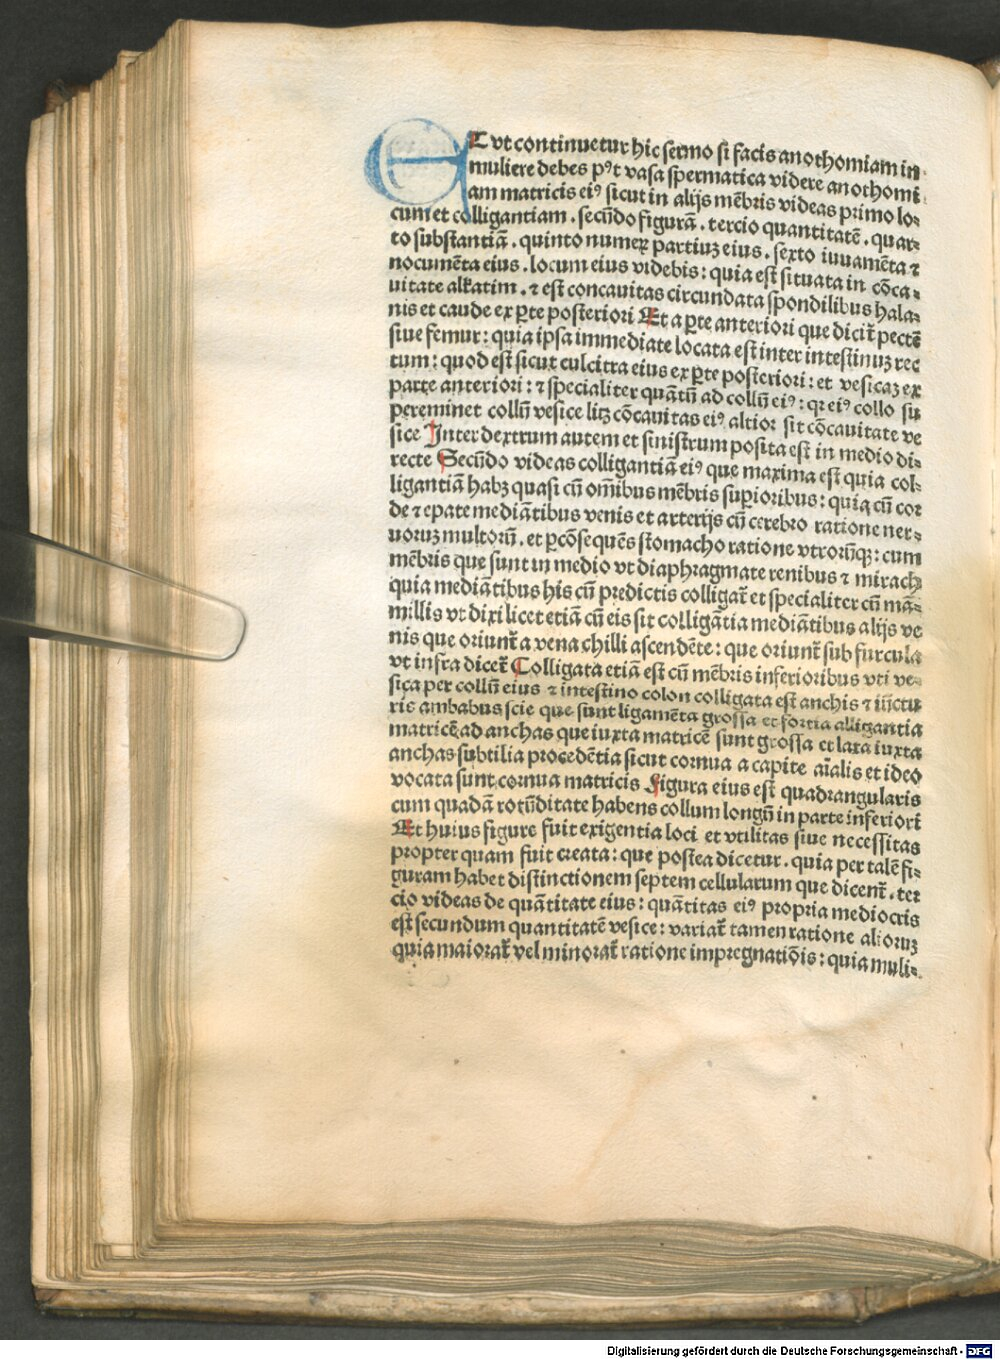 ET vt continuetur hic sermo si facis anothomiam in
muliere debes pꝰt vasa spermatica videre anothomi
am matricis eiꝰ sicut in alijs mēbris videas primo lo⸗
cum et colligantiam . secūdo figurā . tercio quantitatē . quar⸗
to substantiā . quinto numeꝝ partiuꝫ eius . sexto iuuamēta ⁊
nocumēta eius . locum eius videbis : quia est situata in cōca⸗
uitate alkatim . ⁊ est concauitas circundata spondilibus hala⸗
nis et caude ex ꝑte posteriori Et a ꝑte anteriori que dicit̄ pectē
siue femur : quia ipsa immediate locata est inter intestinuꝫ rec
tum : quod est sicut culcitra eius ex ꝑte posteriori : et vesicaꝫ ex
parte anteriori : ⁊ specialiter quātū ad collū eiꝰ : qꝛ eiꝰ collo su
pereminet collū vesice licꝫ cōcauitas eiꝰ altior sit cōcauitate ve
sice Inter dextrum autem et sinistrum posita est in medio di⸗
recte Secūdo videas colligantiā eiꝰ que maxima est quia col⸗
ligantiā habꝫ quasi cū om̄ibus mēbris suꝑioribus : quia cū cor
de ⁊ epate mediātibus venis et arterijs cū cerebro ratione ner⸗
uoruꝫ multorū . et ꝑ cōsequēs stomacho ratione vtrorūqꝫ : cum
mēbris que sunt in medio vt diaphragmate renibus ⁊ mirach
quia mediātibus his cū predictis colligat̄ et specialiter cū mā⸗
millis vt dixi licet etiā cū eis sit colligātia mediātibus alijs ve
nis que oriunt̄ a vena chilli ascendēte : que oriunt̄ sub furcula
vt infra dicet̄ Colligata etiā est cū mēbris inferioribus vti ve⸗
sica per collū eius ⁊ intestino colon colligata est anchis ⁊ iūctu
ris ambabus scie que sunt ligamēta grossa et fortia alligantia
matricē ad anchas que iuxta matricē sunt grossa et laxa iuxta
anchas subtilia procedētia sicut cornua a capite aīalis et ideo
vocata sunt cornua matricis Figura eius est quadrangularis
cum quadā rotūditate habens collum longū in parte inferiori
Et huius figure fuit exigentia loci et vtilitas siue necessitas
propter quam fuit creata : que postea dicetur . quia per talē fi⸗
guram habet distinctionem septem cellularum que dicent̄ . ter
cio videas de quātitate eius : quātitas eiꝰ propria mediocris
est secundum quantitatē vesice : variat̄ tamen ratione alioruꝫ
quia maiorat̄ vel minorat̄ ratione impregnatiōis : quia muli⸗
Digitalisierung gefördert durch die Deutsche Forschungsgemeinschaft - DFG